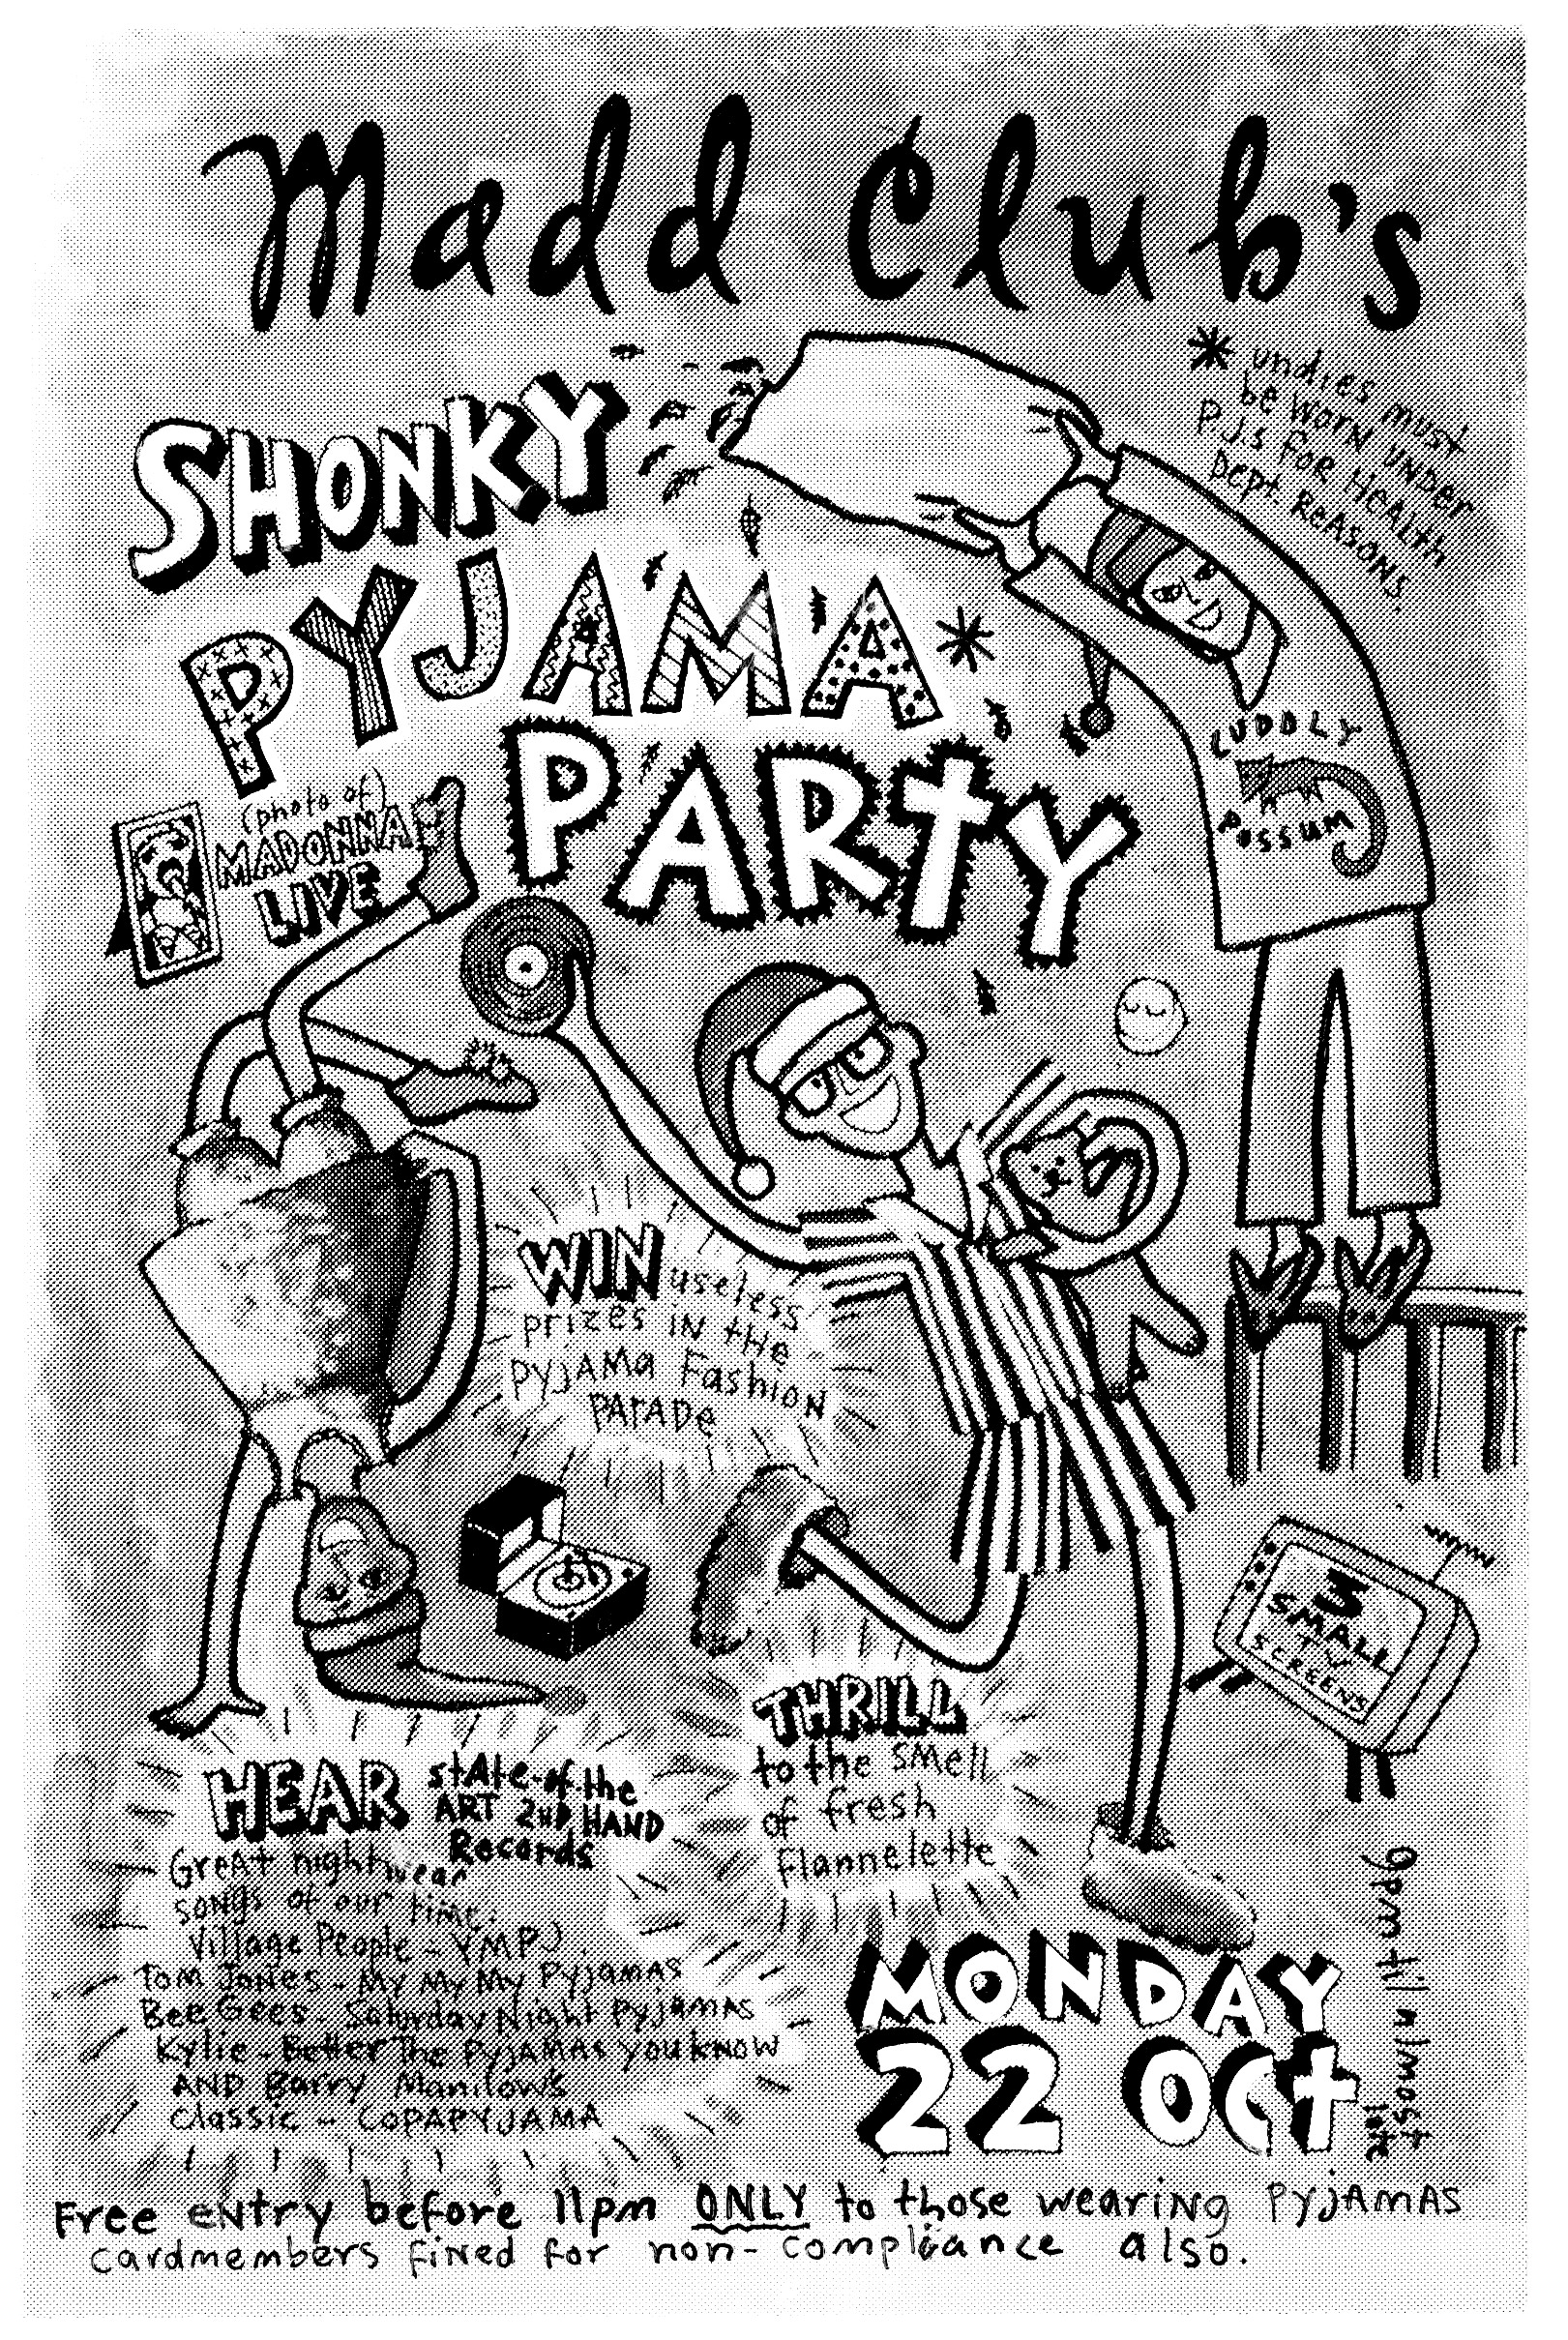 Madd Club's
* undies must
be worn under
P.J.s FOR HEALTH
DEPT. REASONS.
SHONKY
PYJAMA *
PARTY
CUDDLY
POSSUM
(photo of)
MADONNA
LIVE
WIN useless
prizes IN tHe
PyJAMa Fashion
PARADe
3
SMALL
TV
SCREENS
THRILL
to the SMell
of fresh
Flannelette
HEAR stAte-of-the
ART 2ND HAND
Records
GreAt nightwear
songs of our time:
Village People - YMPJ
TOM JONES - My My My PyjAMAS
Bee Gees - Saturday Night PyjAMAS
Kylie - Better The PyJAMAS you kNOW
AND Barry Manilow's
Classic - COPAPYJAMA
MONDAY
22 Oct
9pm til almost
late
Free eNtry before 11pm ONLY to those wearing PyjAMAS
cardmembers fined for non-compliance also.